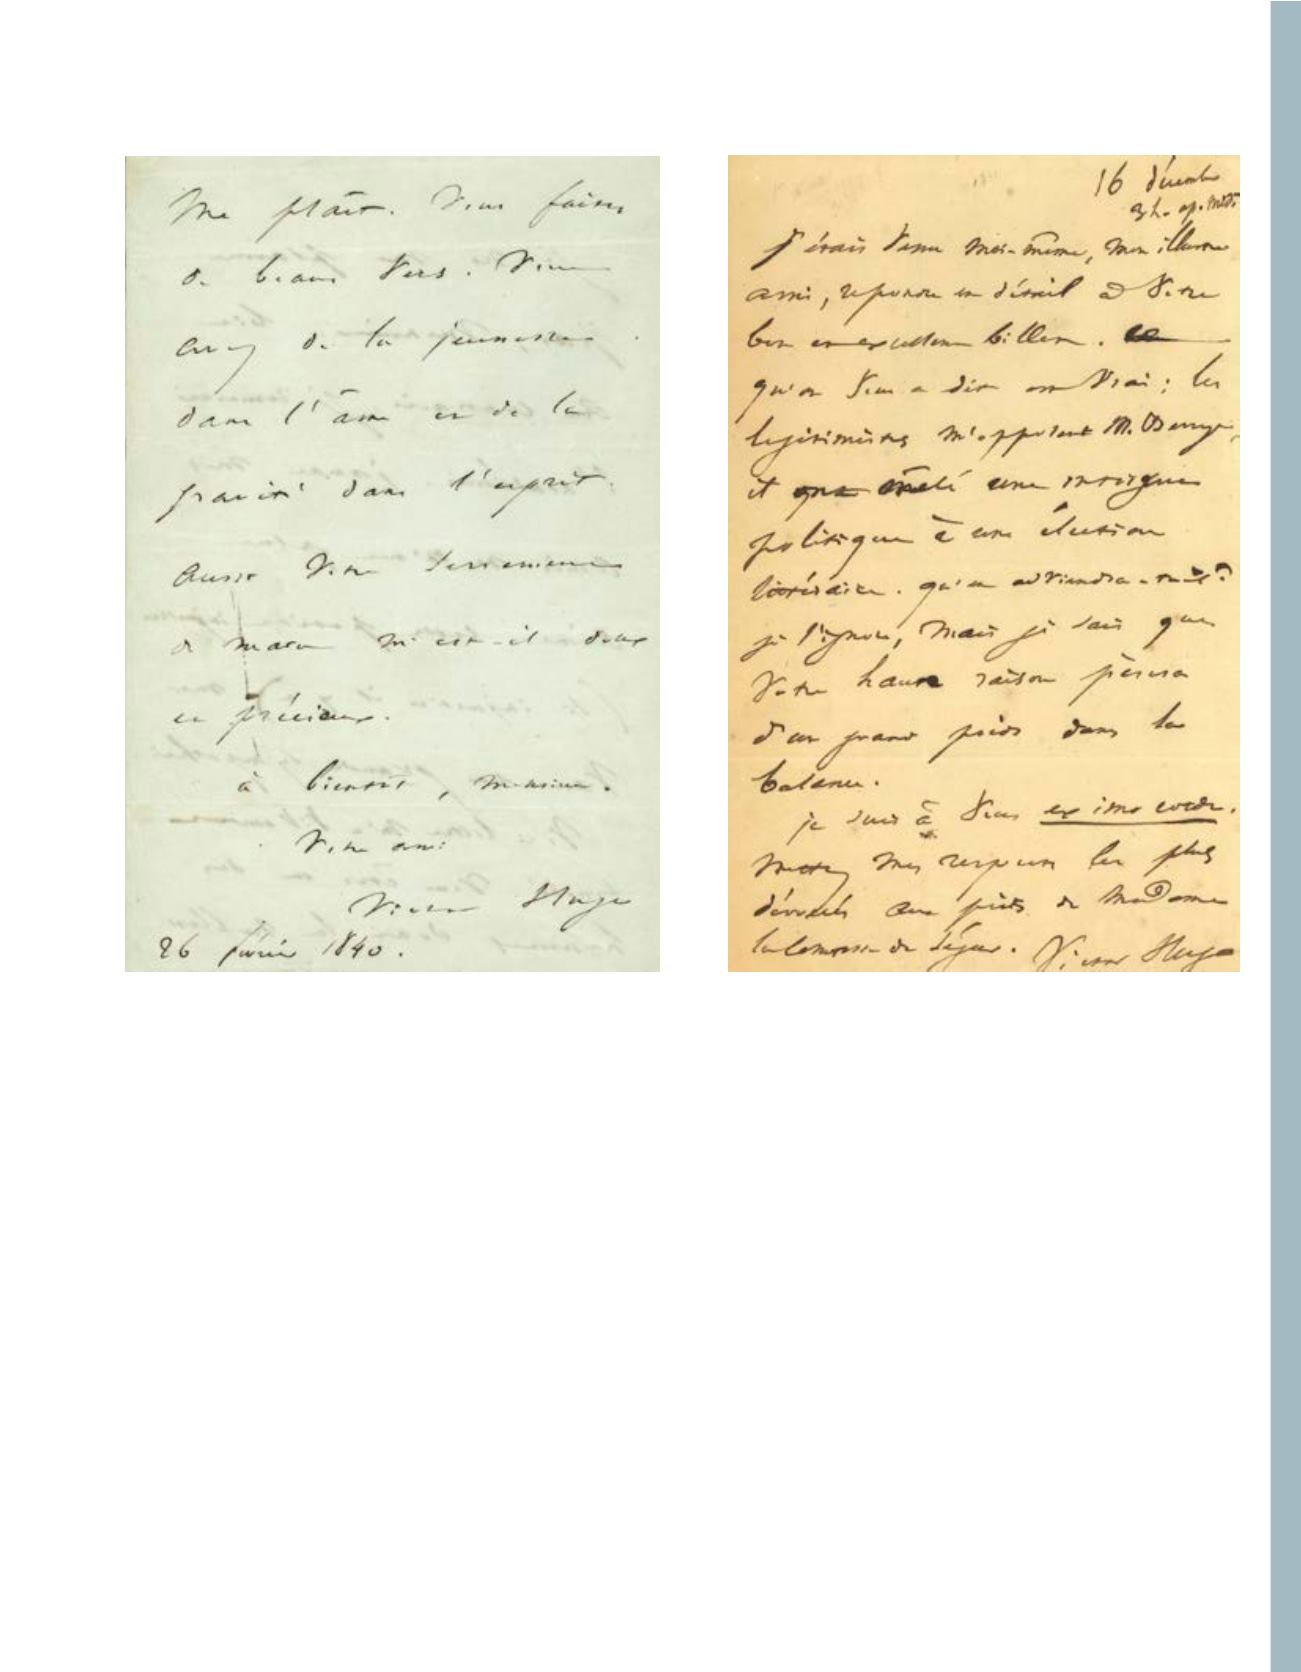 me plaît. Vous faites
de beaux vers. Vous
avez de la jeunesse
dans l'âme et de la
gravité dans l'esprit.
Aussi votre serrement
de main m'est-il doux
et précieux.
à bientôt, monsieur.
Votre ami
Victor Hugo
26 février 1840.
16 décembre
3 h. ap. midi
J'étais venu moi-même, mon illustre
ami, répondre en détail à votre
bon et excellent billet. Ce
qu'on vous a dit est vrai ; les
légitimistes m'opposent M. Berryer,
et mêlé une intrigue
politique à une élection
littéraire. qu'en adviendra-t-il ?
je l'ignore, mais je sais que
votre haute raison pèsera
d'un grand poids dans la
balance.
je suis à vous ex imo corde.
mettez mes respects les plus
dévoués aux pieds de Madame
la Comtesse de Ségur. Victor Hugo